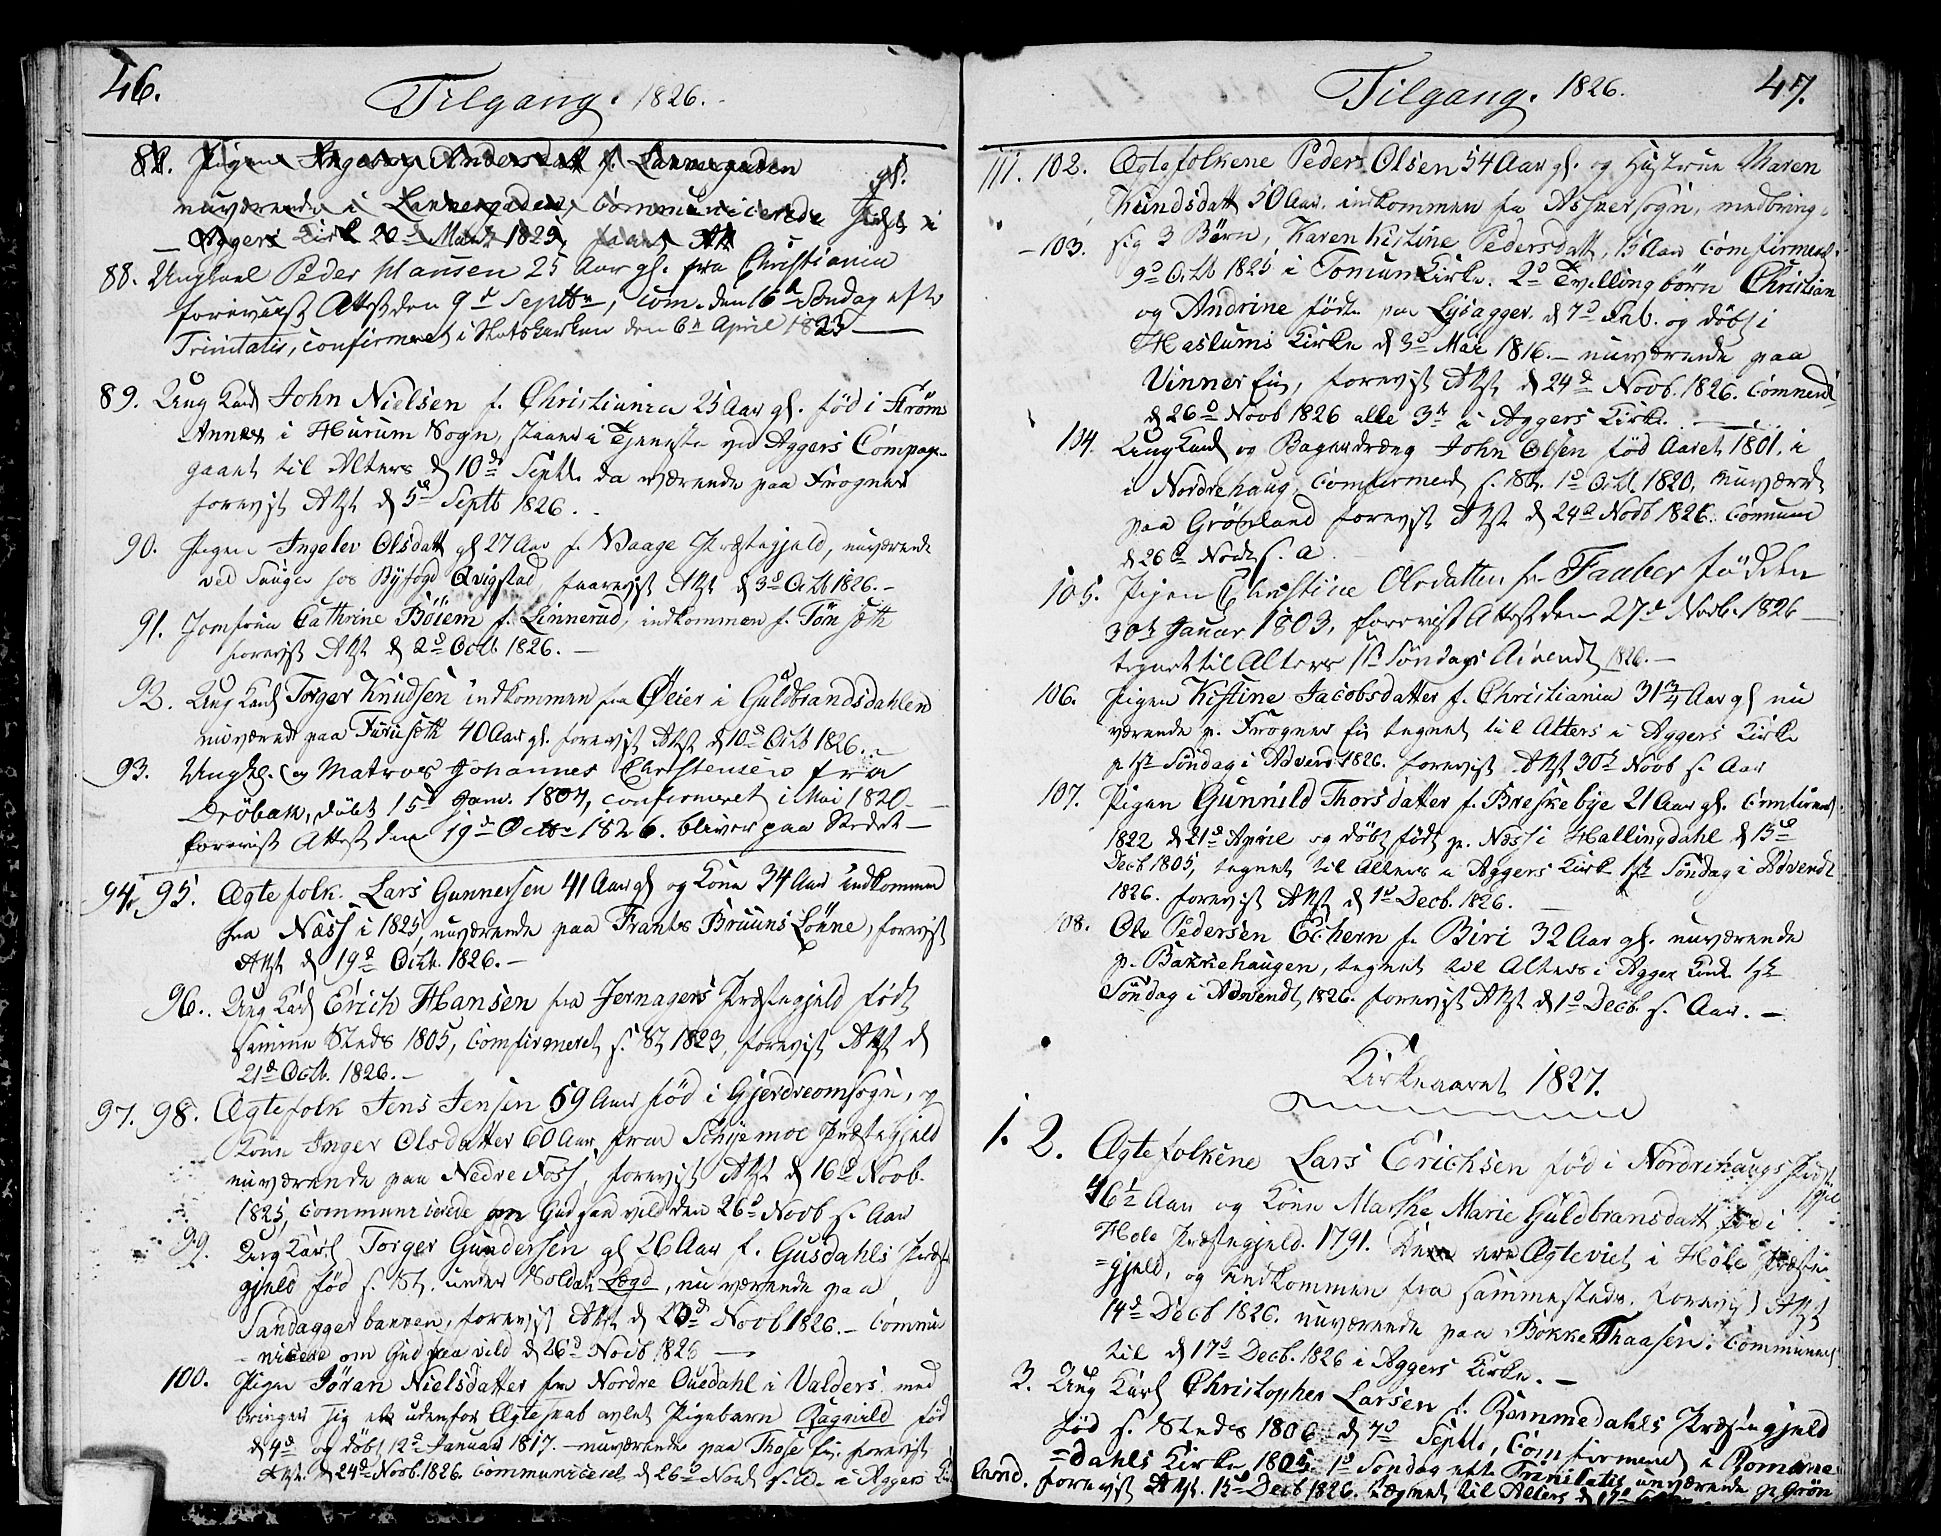 46.
Tilgang. 1826.
Pigen Ingeborg Andersdatt f. Lannergaden
nuværende i Lannergaden, Communicerede
Aggers Kirk 20d Marts 1825,
88. Ungkael Peder Hansen 25 Aar gl. fra Christiania
foreviist Attest den 9d Septbr, com. den 16d Søndag efte
Trinitatis, confirmeret i Slotskirken den 6te April 1823
89. Ung Karl John Nielsen f. Christiania 25 Aar gl. fød i Strøm
i Hurum Sogn, staaer i Tjeneste ved Aggers Compag-
gaaet til Alters d 10de Septbr. da værende paa Frogner
forevist Att d 5d Septb 1826.
90. Pigen Ingelev Olsdatt gl 27 Aar f. Waage Præstegjeld, nuværende
ved Saugen hos Byfogd Qvigstad, faarevist Att d 3d Octb 1826.-
91. Jomfrue Cathrine Böiem f. Linnerud, indkommen f. Tönseth
forevist Att d 2d Octb 1826. -
92. Ung Karl Torger Knudsen indkommen fra Øeier i Guldbrandsdahlen
nuværend paa Furuseth 40 Aar gl. forevist Att d 10d Octb 1826. -
93. Ungk. og Matros Johannes Christensen fra
Dröbak, døbt 15d Janv. 1807, confirmeret i Mai 1820-
forevist Attest den 19d Octbr 1826. bliver paa Stedet-
94. 95. Ægtefolk. Lars Gunnersen 41 Aar gl og Kone 34 Aar indkommen
fra Næss i 1825, nuværende paa Frants Bruuns Lökke, forevist
Att d 19d Octb. 1826. -
96. Ung Karl Erich Hansen fra Jernagers Præstegjeld født
samme Steds 1805, Comfirmeret s. St 1823, forevist Att d
21d Octb. 1826. -
97. 98. Ægtefolk Jens Jensen 59 Aar fød i Gjerdreomsogn, og
Kone Inger Olsdatter 60 Aar, fra Schjemoe Præstegjeld
nuværende paa Nedre Foss, forevist Att d 16d Novb.
1825, Communicerede om Gud saa vild den 26d Novb s. Aar
99. Ung Karl Torger Gundersen gl 26 Aar f. Gusdahls Præste
gjeld fød s. St. under Soldat Lægd, nuværende paa
Sandaggerbakken, forevist Att d 20de Novb 1826. - Commu
nicere om Gud saa vild d 26d Novb 1826
100. Pigen Jöran Nielsdatter fra Nordre Ouedahl i Valders. med
bringer sig et udenfor Ægteskab avlet Pigebarn Ragnild fød
d 4d og døbt 12d Januar 1817. - nuværende paa forevist
Att. d 24d Novb. 1826. Communiceret d 26d Novb s. A. i Aggers
47.
Tilgang. 1826.
111. 102. Ægtefolkene Peder Olsen 54 Aar gl. og Hustrue Maren
Knudsdatt 50 Aar. indkommen fra Askersogn, medbring-
- 103. sig 3 Börn, Karen Kistine Pedersdatt, 15 Aar Comfirmert
9d Octb 1825 i Kirke. 2d Tvillingbörn Christian
og Andrine fødte paa Lysagger d 7d Feb. og døbt i
Haslums Kirke d 3d Mai 1816. - nuværende paa
Vinneren, forevist Att d 24d Novb. 1826. Commend
d 26d Novb 1826 alle 3de i Aggers Kirke.
104. Ung Karl og Bagerdreng John Olsen fød Aaret 1801. i
i Nordrehaug, Comfirmered s. St. 1d Octb. 1820, nuværend
paa Grönland forevist Att d 24d Novb 1826. Commune
d 26d Novb s. a.
105. Pigen Christine Olsdatten fra Fauber födden
30te Januar 1803, forevist Attest den 27d Novb. 1826 -
tegnet til Alters 1ste Söndag i Advendt 1826. -
106. Pigen Kistine Jacobsdatter f. Christiania 31 3/4 Aar gl nu
værende p. Frogner tegnet til Alters i Aggers Kirke
p. 1ste Søndag i Advend 1826. forevist Att 30te Novb s. Aar
107. Pigen Gunnild Thorsdatter f. Breskebye 21 Aar gl. Comfirmert
1822 d 21d Aprile og döbt, født p. Næss i Hallingdahl d 15d
Decb 1805, tegnet til Alters i Aggers Kirke 1ste Søndag i Advendt
1826. forevist Att d 1d Decb. 1826. -
108. Ole Pedersen Echern f. Biri 32 Aar gl. nuværende
p. Bakkehaugen, tegnet til Alters i Agger Kirke 1ste
Söndag i Advendt, 1826. forevist Att d 1d Decb. s. Aar. -
Kirkeaaret 1827.
1. 2. Ægtefolkene Lars Erichsen fød i Nordrehaugs Præstegjel
46½ Aar og Kone Marthe Marie Guldbransdatt fød i
Hole Præstegjeld. 1791. De ere Ægteviet i Hole Præste-
=gjeld, og indkommen fra sammesteds. forevist Att
14d Decb 1826. nuværende paa Bakke Thaasen. Communed
til d 17d Decb. 1826 i Aggers Kirke. -
3. Ung Karl Christopher Larsen f. Rommedahls Præstegjeld
fød s. Steds 1806 d 7d Septb, Comfirmered i Romme
=dahls Kirke 1825. 1d Søndag efter Trinitatis nuværende p. Grön
land. forevist Att. 15d Decb 1826. tægnet til Alters d 17d